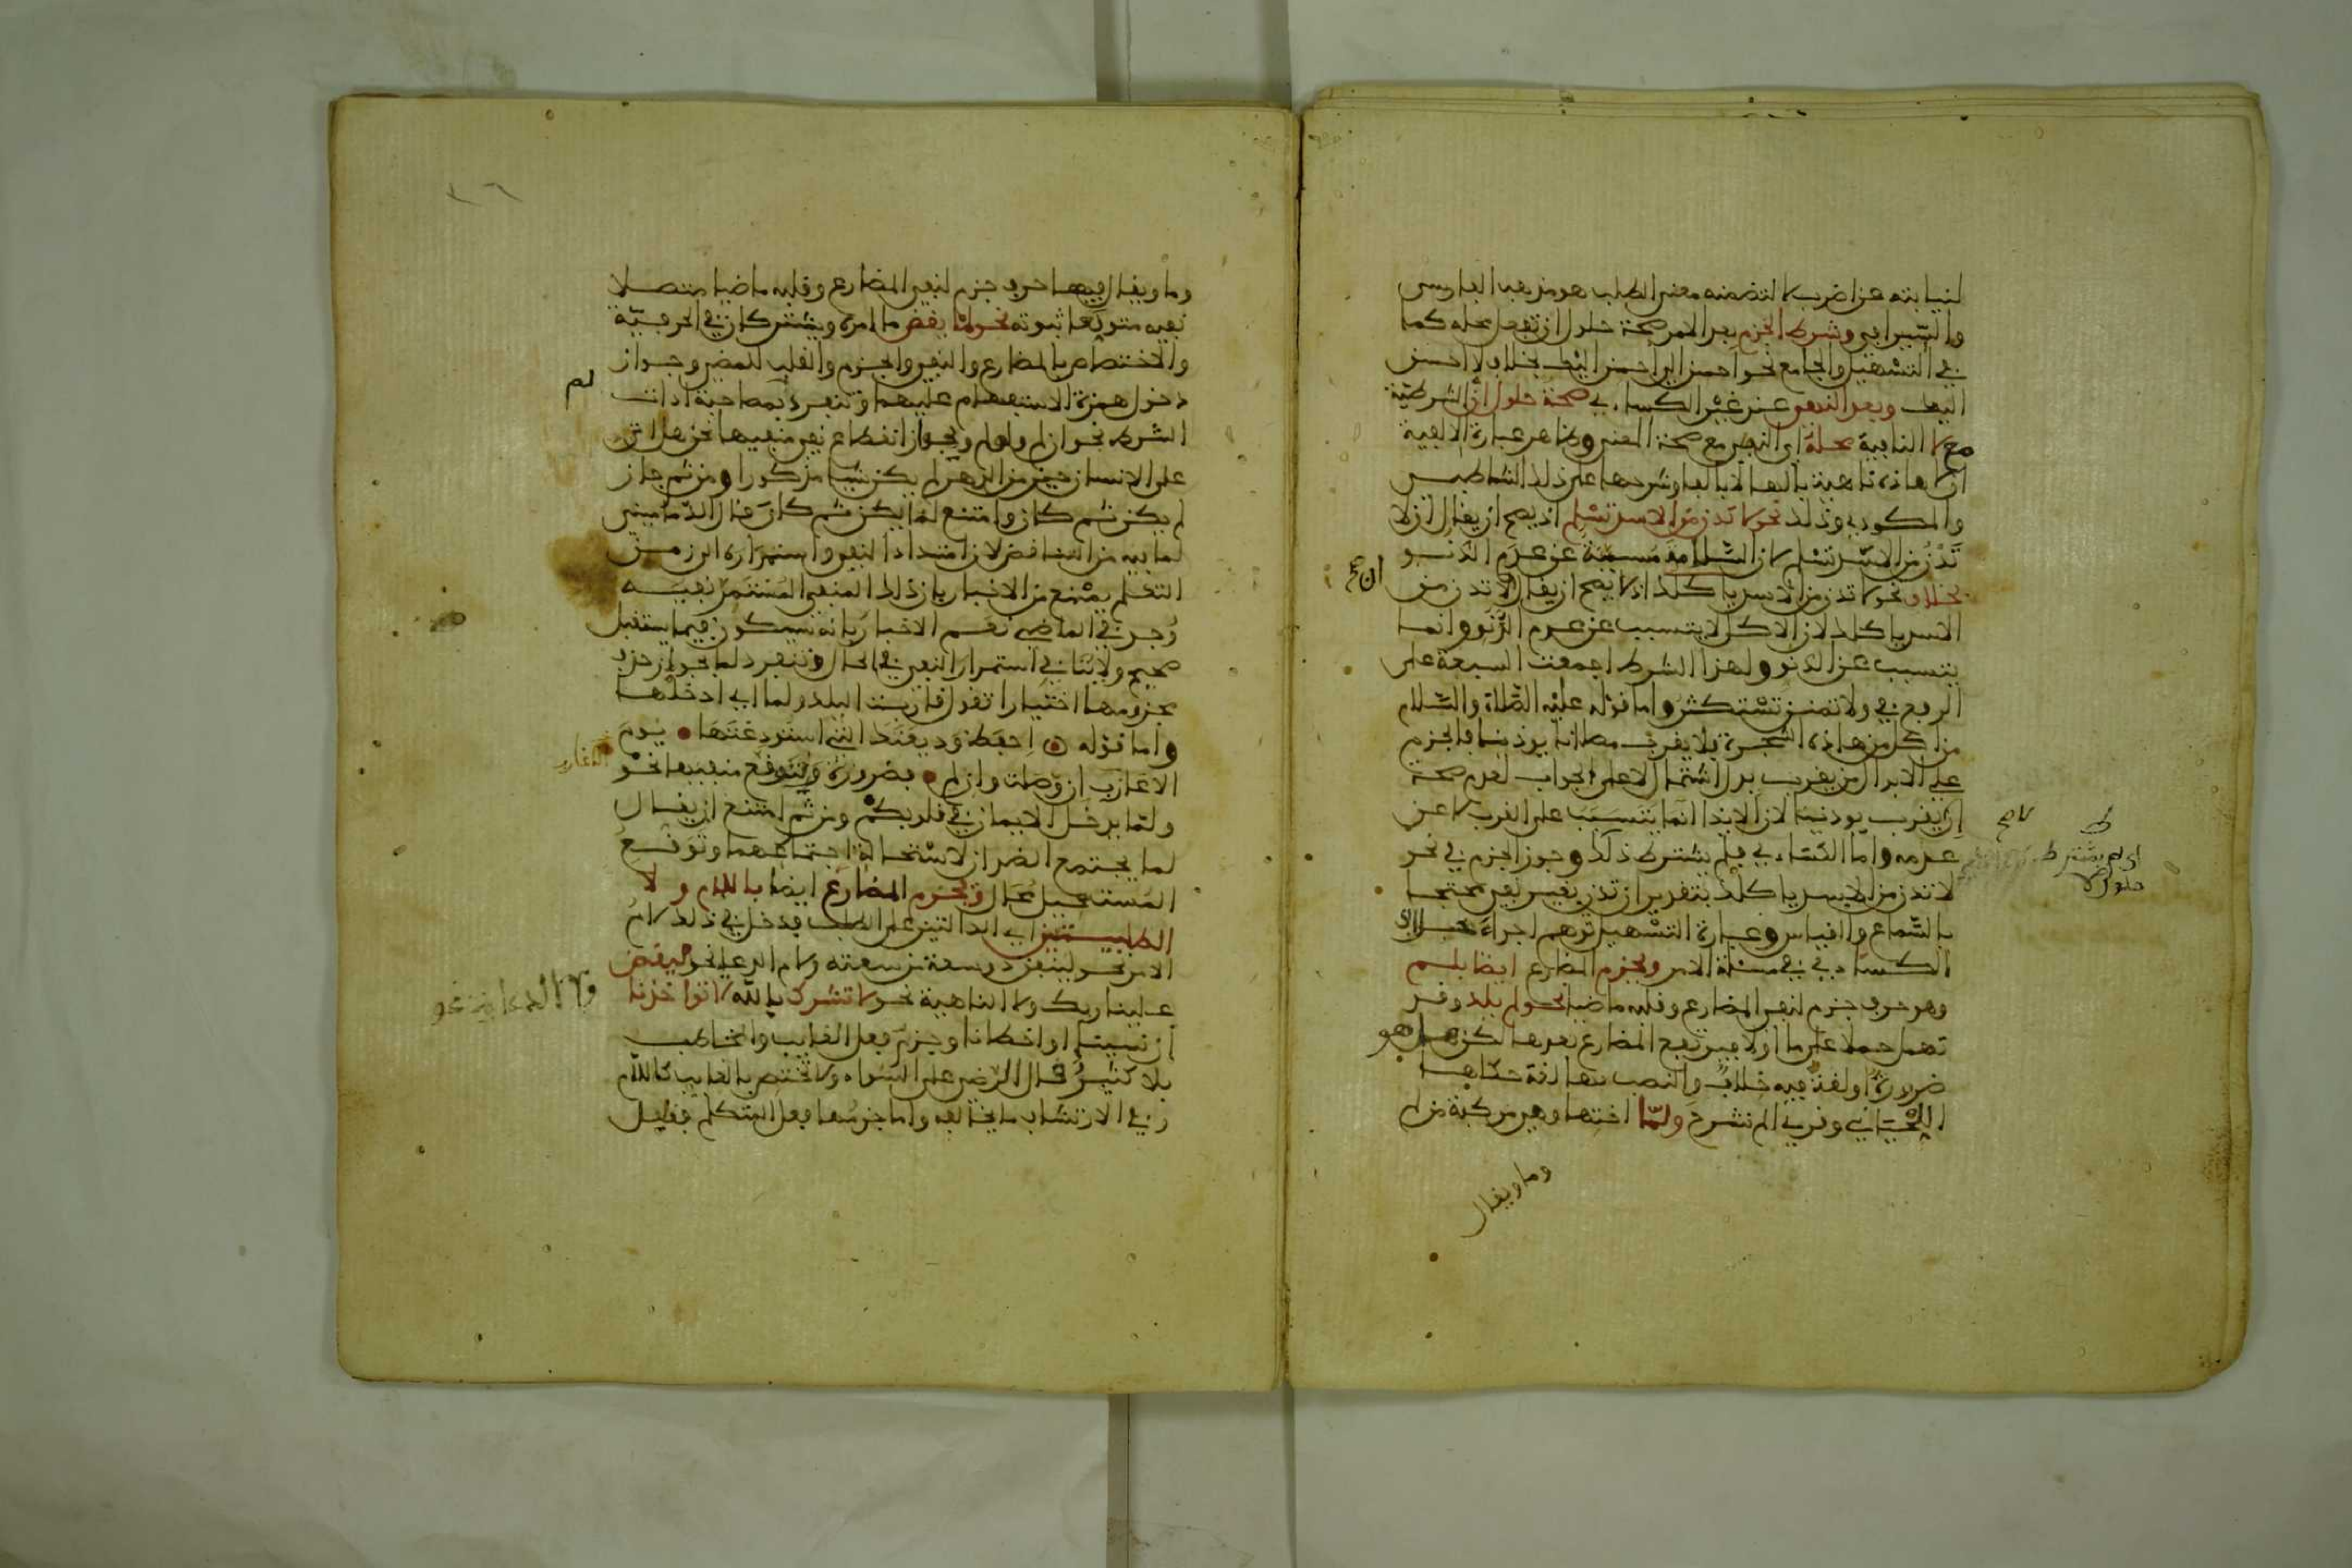 لنيابته عن اضرب لا لتضمنه معنى الطلب هو مذهب الفارسى
والسيرافي وشرط الجزم بعد الامر صحة حلول ان تفعل محله كما
في التسهيل والجامع نحو احسن الي احسن اليك بخلاف لا احسن
اليك وبعد النهي عند غير الكساءي صحة حلول ان الشرطية
مع لا النافية محله اي النهي مع صحة المعنى وظاهر عبارة الالفية
ان هاذه ناهية بالها لا بالها وشرحها على ذلك الشاطبي
والمكودي وذلك نحو لا تدن من الاسد تسلم اذ يصح ان يقال ان لا
تدن من الاسد تسلم لان السلامة مسببة عن عدم الدنو
بخلاف نحو لا تدن من الاسد ياكلك اذ لا يصح ان يقال ان لا تدن من
الاسد ياكلك لان الاكل لا يتسبب عن عدم الدنو وانما
يتسبب عن الدنو ولهذا الشرط اجمعت السبعة على
الرفع في ولا تمنن تستكثر واما قوله عليه الصلاة والسلام
من اكل من هاذه الشجرة فلا يقرب مصلانا يوذنا فالجزم
على الابدال من يقرب بدل اشتمال لا على الجواب لعدم صحة
ان لا يقرب يوذنا لان الايذا انما يتسبب على القرب لا عن
عدمه واما الكساءي فلم يشترط ذلك وجوز الجزم في نحو
لا تدن من الاسد ياكلك بتقدير ان تدن بغير نفي محتجا
بالسماع والقياس وعبارة التسهيل توهم اجراء خلاف
الكساءي في مسئلة الامر ويجزم المضارع ايضا بلم
وهو حرف جزم لنفي المضارع وقلبه ماضيا نحو لم يلد وقد
تهمل حملا على ما او لا فيرتفع المضارع بعدها لكن هل هو
ضرورة او لغة فيه خلاف والنصب بها لغة حكاها
اللحياني وقرئ الم نشرح ولما اختها وهي مركبة من لم
وما ويقال
وما ويقال فيهما حرف جزم لنفي المضارع وقلبه ماضيا متصلا
نفيه متوقعا ثبوته نحو لما يقض ما امره ويشتركان في الحرفية
والاختصاص بالمضارع والنفي والجزم والقلب للمضي وجواز
دخول همزة الاستفهام عليهما وتنفرد لم بمصاحبة ادات
الشرط نحو ان لم ولو لم وبجواز انقطاع نفي منفيها نحو هل اتى
على الانسان حين من الدهر لم يكن شيئا مذكورا ومن ثم جاز
لم يكن ثم كان وامتنع لما يكن ثم كان قال الدماميني
لما فيه من التناقض لان امتداد النفي واستمراره الى زمن
التكلم يمنع من الاخبار بان ذلك المنفي المستمر نفيه
وجد في الماضي نعم الاخبار بانه سيكون فيما يستقبل
صحيح ولا ينافي استمرار النفي في الحال وتنفرد لما بجواز حذف
مجزومها اختيارا تقول قاربت البلد ولما اي ادخلها
واما قوله احفظ وديعتك التي استودعتها يوم
الاعازب ان وصلت وان لم فضرورة وبتوقع منفيها نحو
ولما يدخل الايمان في قلوبكم ومن ثم امتنع ان يقال
لما يجتمع الضدان لاستحالة اجتماعهما وتوقع
المستحيل محال ويجزم المضارع ايضا باللام ولا
الطلبيتين اي الدالتين على الطلب فدخل في ذلك لام
الامر نحو لينفق ذو سعة من سعته ولام الدعا نحو ليقض
علينا ربك ولا الناهية نحو لا تشرك بالله لا تواخذنا
ان نسينا او اخطانا وجزم فعل الغايب والمخاطب
بلا كثير قال الرضي على السواء ولا تختص بالغايب كاللام
وفي الارتشاف ما يخالفه واما جزمها فعل المتكلم فقليل
لم
ولا الدعا نحو